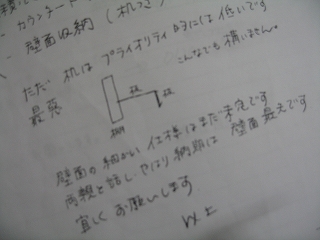 ・カウンター
・壁面収納（机つき
ただ、机は プライオリティ 的には 低いです
最悪
板
板
棚
こんなでも 構いません。
壁面の細かい仕様はまだ未定です
両親と話し、やはり納期は 壁面最えです
宜しく お願いします
以上